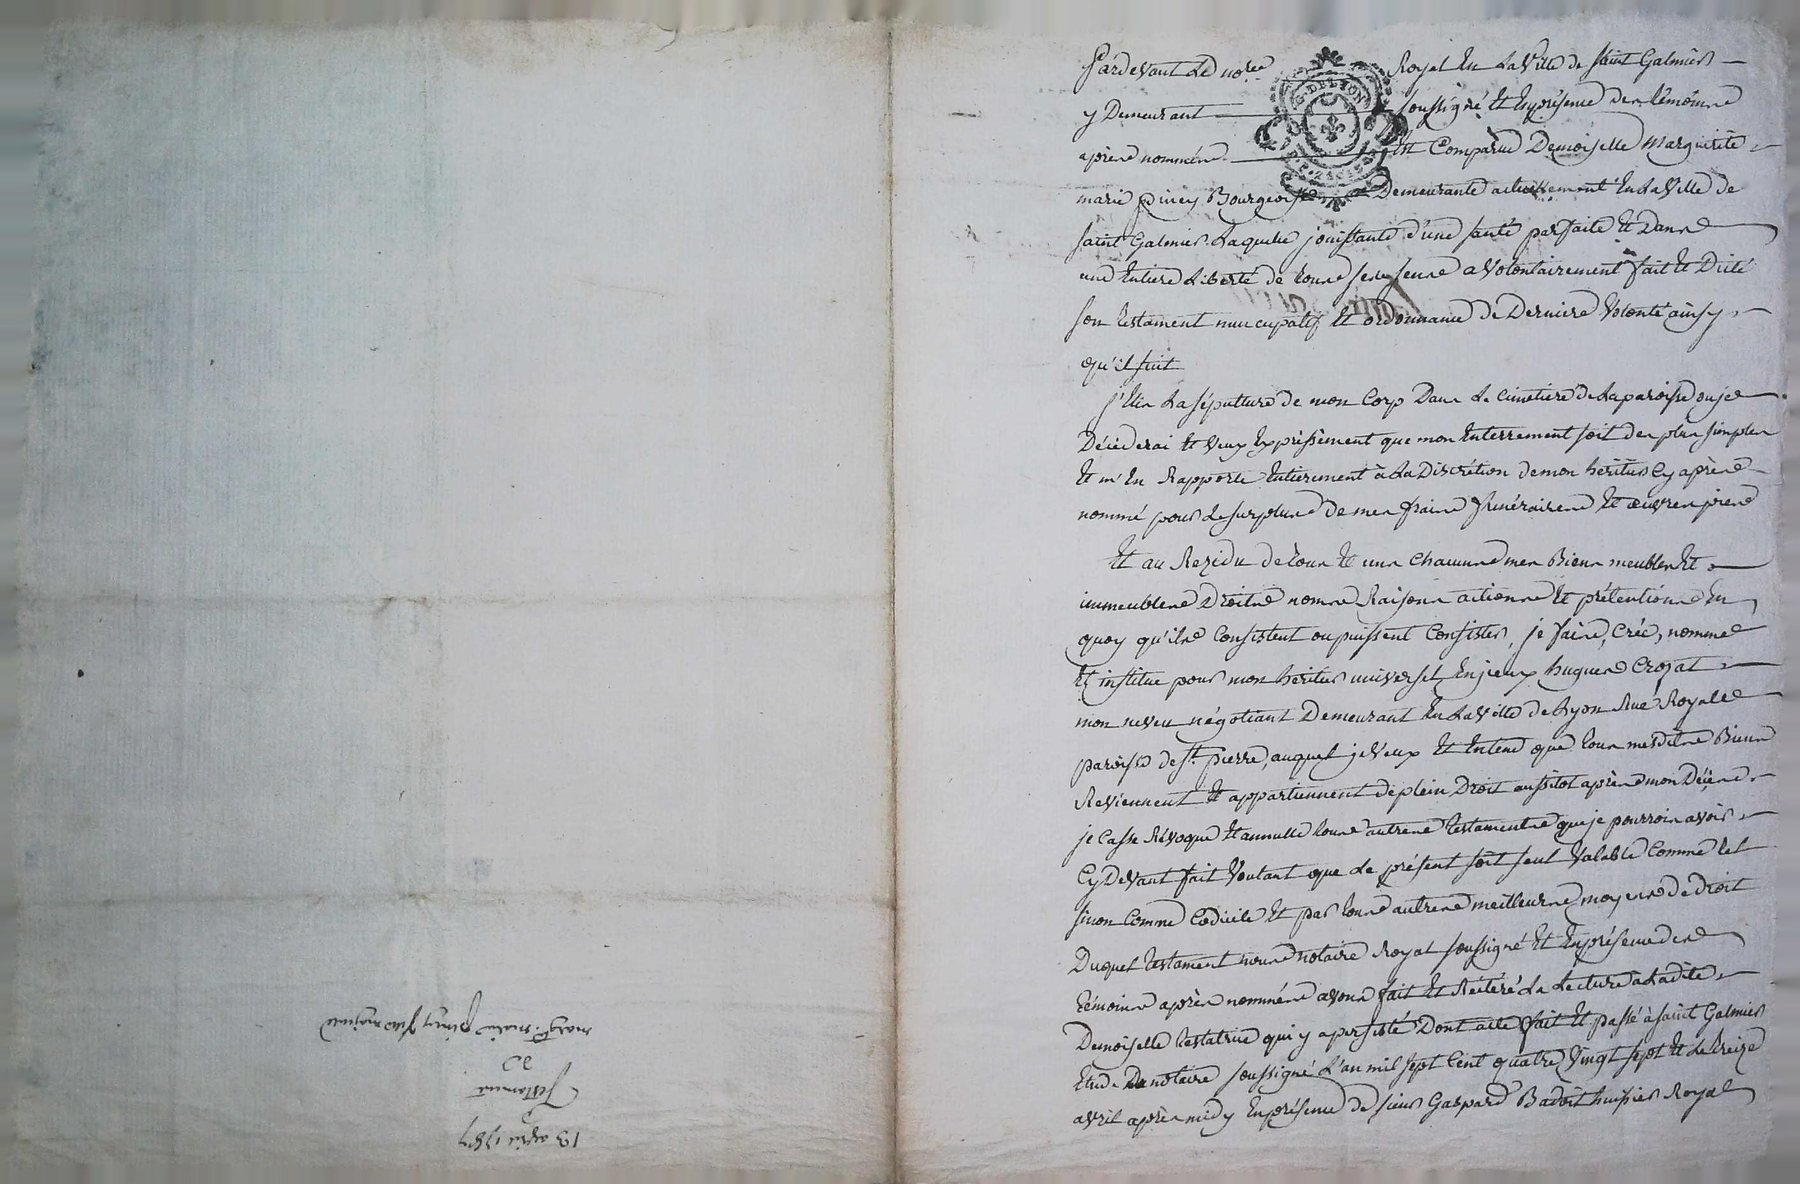 Pardevant Le no.re Royal En La Ville de Saint Galmier
G. DE LYON
y Demeurant soussigné Et En présence des témoins
après nommés Est Comparue Demoiselle Marguerite
marie piney Bourgeoise Demeurante actuellement En La Ville de
saint Galmier Laquelle jouissante d'une santé parfaite Et Dans
une Entiere Liberté de tous ses sens a Volontairement fait Et Dicté
son testament nuncupatif Et ordonnance de Derniere Volonté ainsy
qu'il suit
j'Elis La sépulture de mon Corp Dans Le Cimetiere de La paroisse ou je
Décèderai Et Veux Expressement que mon Enterrement soit des plus simples
Et m'En Rapporte Entierement à La Discrétion de mon héritier Cy après
nommé pour Le surplus de mes frais funéraires Et œuvres pies
Et au Rezidu de tous Et uns Chacuns mes Biens meubles Et
immeubles Droits noms Raisons actions Et prétentions En
quoy qu'ils Consistent ou puissent Consister, je fais, Crée, nomme
Et institue pour mon héritier universel, Hugues Crozat
mon neveu négotiant Demeurant En La Ville de Lyon Rue Royalle
paroisse de St. pierre, auquel je Veux Et Entend que tous mesdits Biens
Reviennent Et appartiennent de plein Droit aussitot après mon Décès
je Casse Révoque Et annulle tous autres testaments que je pourrois avoir
Cy Devant fait Voulant que Le présent soit seul Valable Comme tel
sinon Comme Codicile Et par tous autres meilleurs moyens de droit
Duquel testament nous notaire Royal soussigné Et En présence des
témoins après nommés avons fait Et Réitéré La Lecture à La dite
Demoiselle testatrice qui y a persisté Dont acte fait Et passé à saint Galmier
Etude Du notaire soussigné L'an mil sept Cent quatre Vingt sept Et Le treize
avril après midy En présence de sieur Gaspard Badoit huissier Royal
13 avril 1787
Testament
de
marg.te marie piney fille majeure